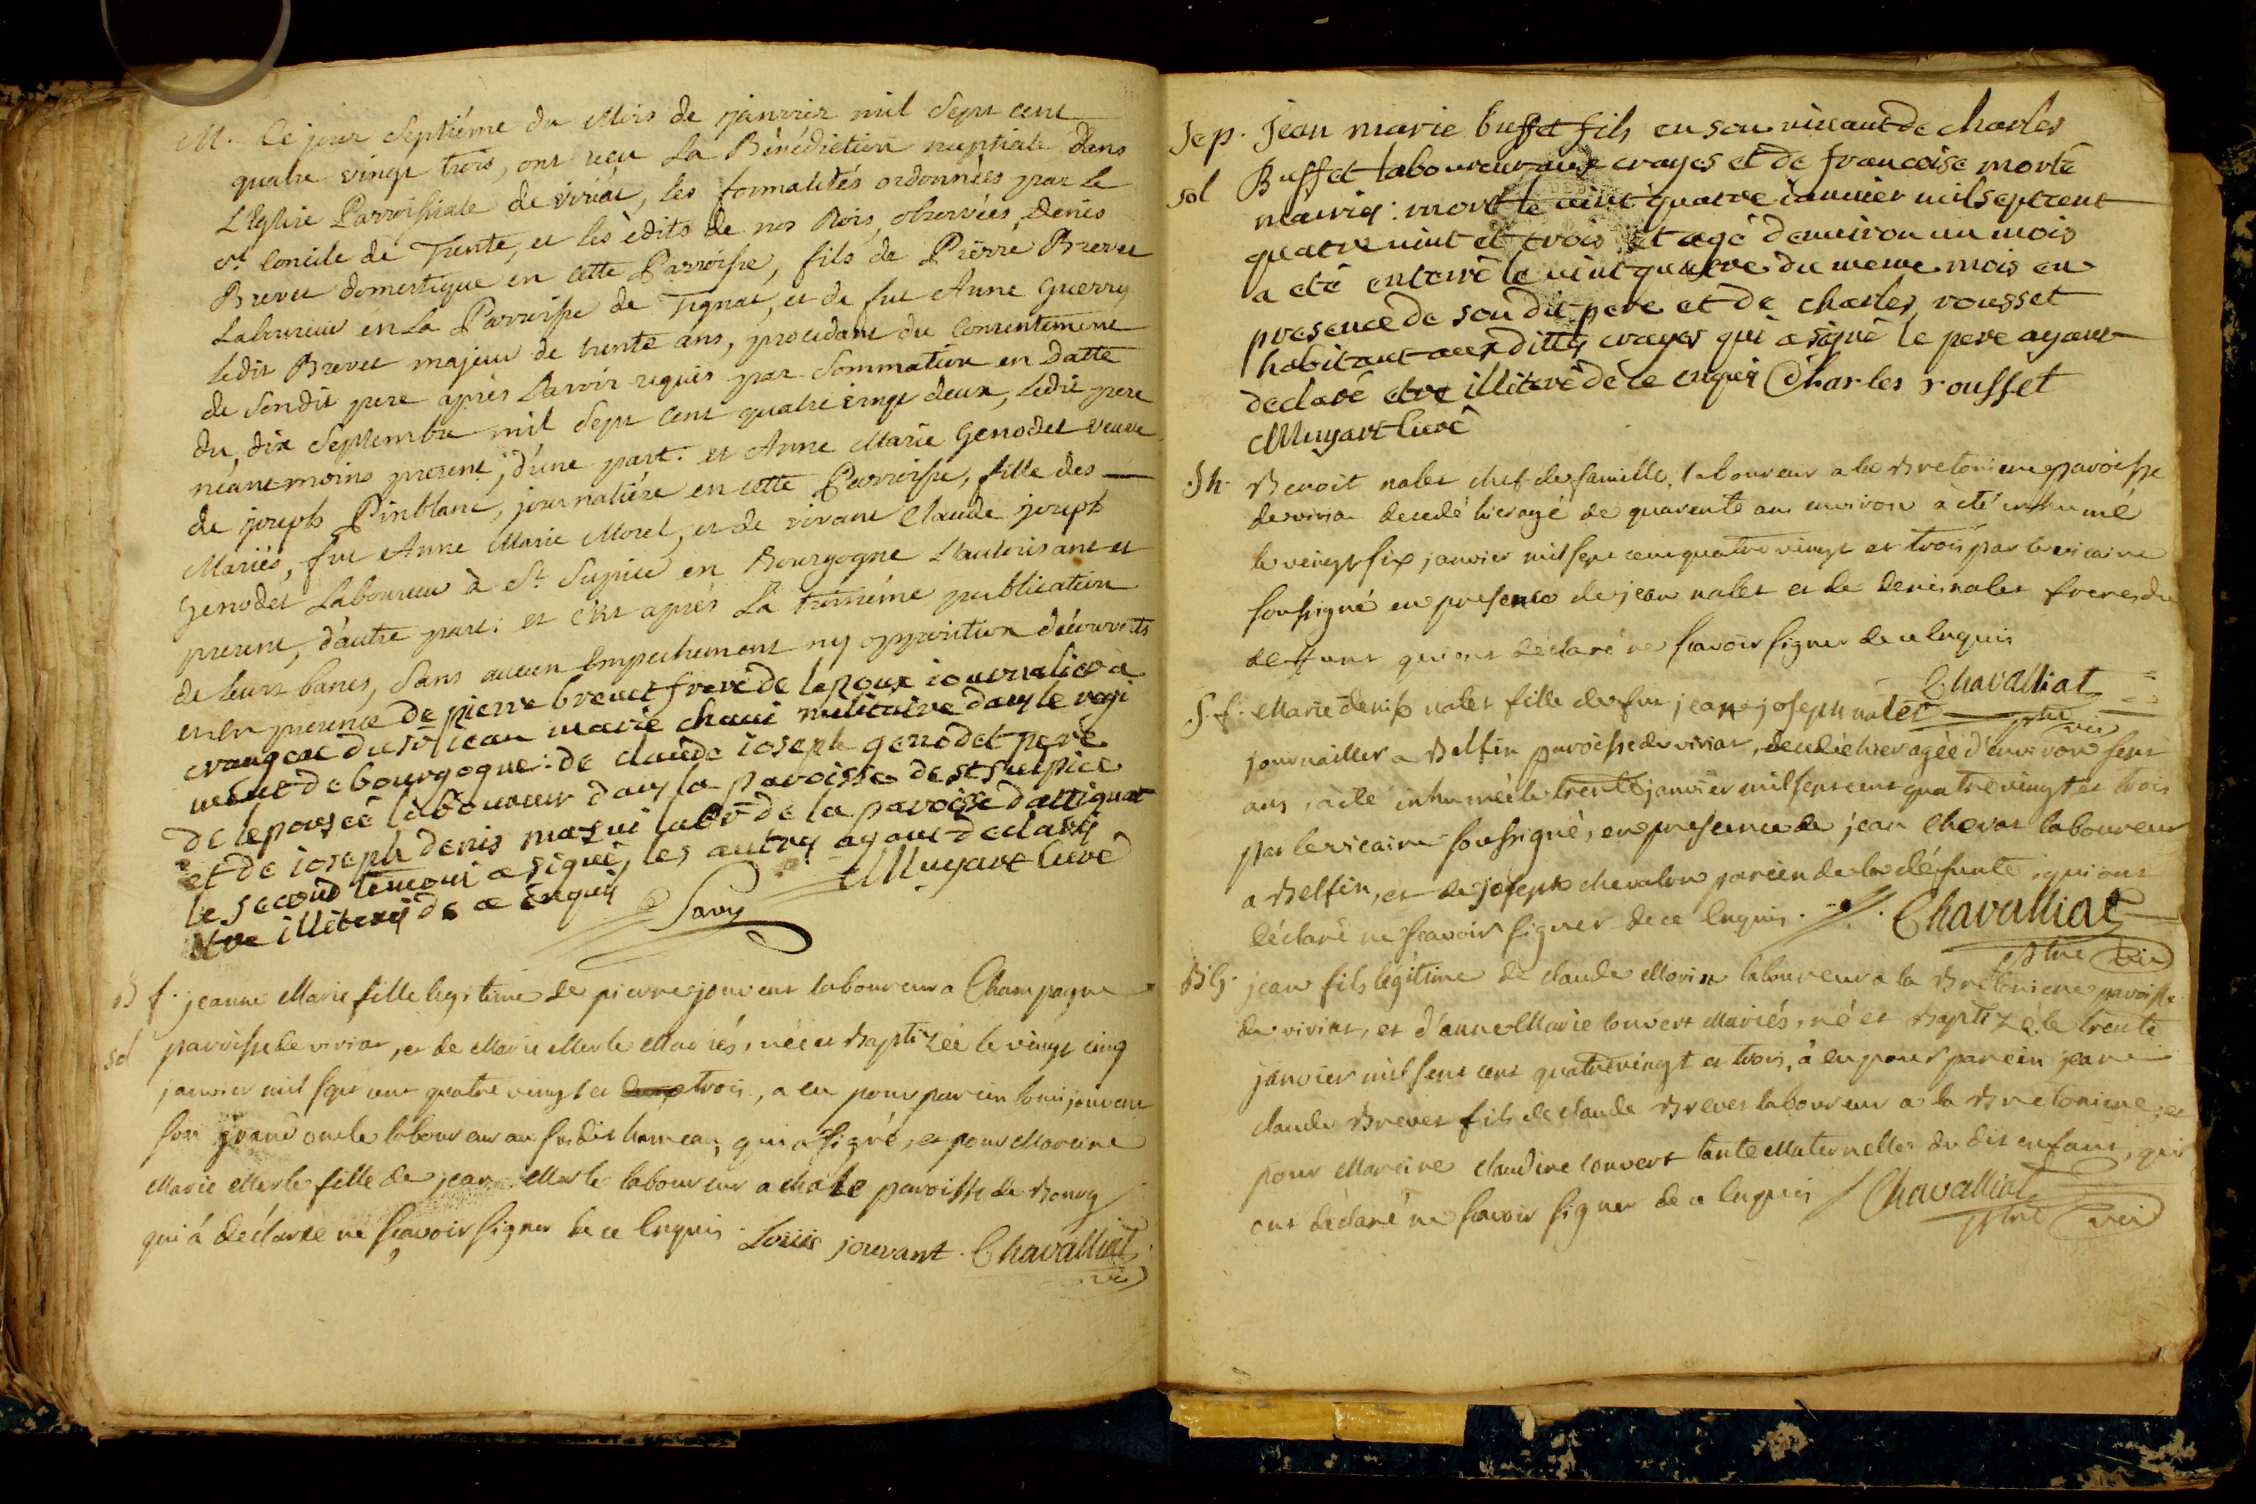 M. Ce jour septiéme du Mois de janvier mil sept cent
quatre vingt trois, ont reçu La Bénédiction nuptiale dans
L'Eglise Parroissiale de viriat, les formalités ordonnées par le
st Concile de Trente, et les édits de nos Rois, observées, Denis
Brevet domestique en cette Parroisse, fils de Pierre Brevet
Laboureur en La Parroisse de Tignat, et de fut Anne Guerry
Ledit Brevet majeur de trente ans, procedant du Consentement
de sondit pere après L'avoir requis par Sommation en datte
du dix septembre mil sept cent quatre vingt deux, ledit pere
néantmoins present, d'une part. et Anne Marie Genodet veuve
de joseph Pinblanc, journaliére en cette Parroisse, fille des
Mariés, fut Anne Marie Morel, et de vivant Claude joseph
Genodet Laboureur à St Supice en Bourgogne L'autorisant et
present, d'autre part; et c'est après La troisiéme publication
de leurs bancs, sans aucun Empechement ny opposition découverts
et en presence de pierre brevet frere de lepoux iournalier a
crangeac du sr jean marie chavi militaire dans le regi
ment de bourgogne: de claude ioseph genodet pere
de lepousee laboureur dans la paroisse de st sulpice
et de ioseph denis masui labr de la paroisse dattignat
le second temoin a signé, les autres ayant declaré
etre illiterés de ce enquis Muyart Curé
Savy
B f. jeanne Marie fille legitime de pierre jouvent laboureur a Champagne
sol paroisse de viriat, et de Marie Merle Mariés, née et Baptizée le vingt cinq
janvier mil sept cent quatre vingt et trois, a eu pour parein louis jouvent
son grand oncle laboureur au susdit hameau, qui a signé, et pour Mareine
Marie Merle fille de jean Merle laboureur a paroisse de Bourg
qui à déclarée ne sçavoir signer de ce Enquis. Louis jouvant. Chavalliat
vic
Sep. Jean marie buffet fils en son vivant de charles
sol Buffet laboureur aux crayes et de francoise morte
mariés: mort le vint quatre ianvier mil sept cent
quatre vint et trois et agé denviron un mois
a eté enterré le vint quatre du meme mois en
presence de son dit pere et de charles rousset
habitant aux dittes crayes qui a signé le pere ayant
declaré etre illiteré de ce enquis Charles roufset
Muyart Curé
Sh. Benoit nalet chef de famille, laboureur a la Bretoniere paroisse
de viriat decedé hier agé de quarente ans environ a été inhumé
le vingt six janvier mil sept cent quatre vingt et trois par le vicaire
soussigné en presence de jean nalet et de denis nalet freres du
defunt qui ont déclaré ne sçavoir signer de ce Enquis
Chavalliat
ptre vic
S.f. Marie denise nalet fille de fut jean joseph nalet
journailler a Belfin paroisse de viriat, decedée hier agée d'environ sept
ans, a été inhumée le trente janvier mil sept cent quatre vingt et trois
par le vicaire soussigné, en presence de jean Chevat laboureur
a Belfin, et de joseph chevalon parein de la défunte, qui ont
déclaré ne sçavoir signer de ce Enquis. Chavalliat
ptre vic
B G. jean fils légitime de claude Morin laboureur a la Bretoniere paroisse
de viriat, et d'anne Marie Convert Mariés, né et Baptizé le trente
janvier mil sept cent quatre vingt et trois, à eu pour parein jean
claude Brevet fils de claude Brevet laboureur a la Bretoniere, et
pour Mareine claudine Convert tante Maternelle du dit enfant, qui
ont déclaré ne sçavoir signer de ce Enquis Chavalliat
ptre vic